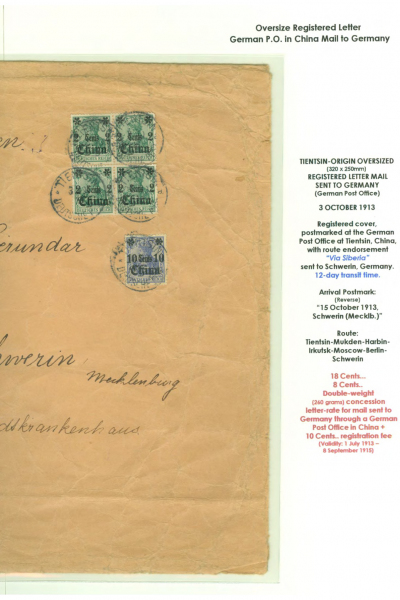 Oversize Registered Letter
German P.O. in China Mail to Germany
2 Cents 2
China
2 Cents 2
China
2 Cents 2
China
2 Cents 2
China
TIENTSIN
DEUTSCHE
10 Cents 10
China
erundar
werin
Mecklenburg
dskrankenhaus
TIENTSIN-ORIGIN OVERSIZED
(320 x 250mm)
REGISTERED LETTER MAIL
SENT TO GERMANY
(German Post Office)
3 OCTOBER 1913
Registered cover,
postmarked at the German
Post Office at Tientsin, China,
with route endorsement
"Via Siberia"
sent to Schwerin, Germany.
12-day transit time.
Arrival Postmark:
(Reverse)
"15 October 1913,
Schwerin (Mecklb.)"
Route:
Tientsin-Mukden-Harbin-
Irkutsk-Moscow-Berlin-
Schwerin
18 Cents...
8 Cents..
Double-weight
(260 grams) concession
letter-rate for mail sent to
Germany through a German
Post Office in China +
10 Cents.. registration fee
(Validity: 1 July 1913 –
8 September 1915)